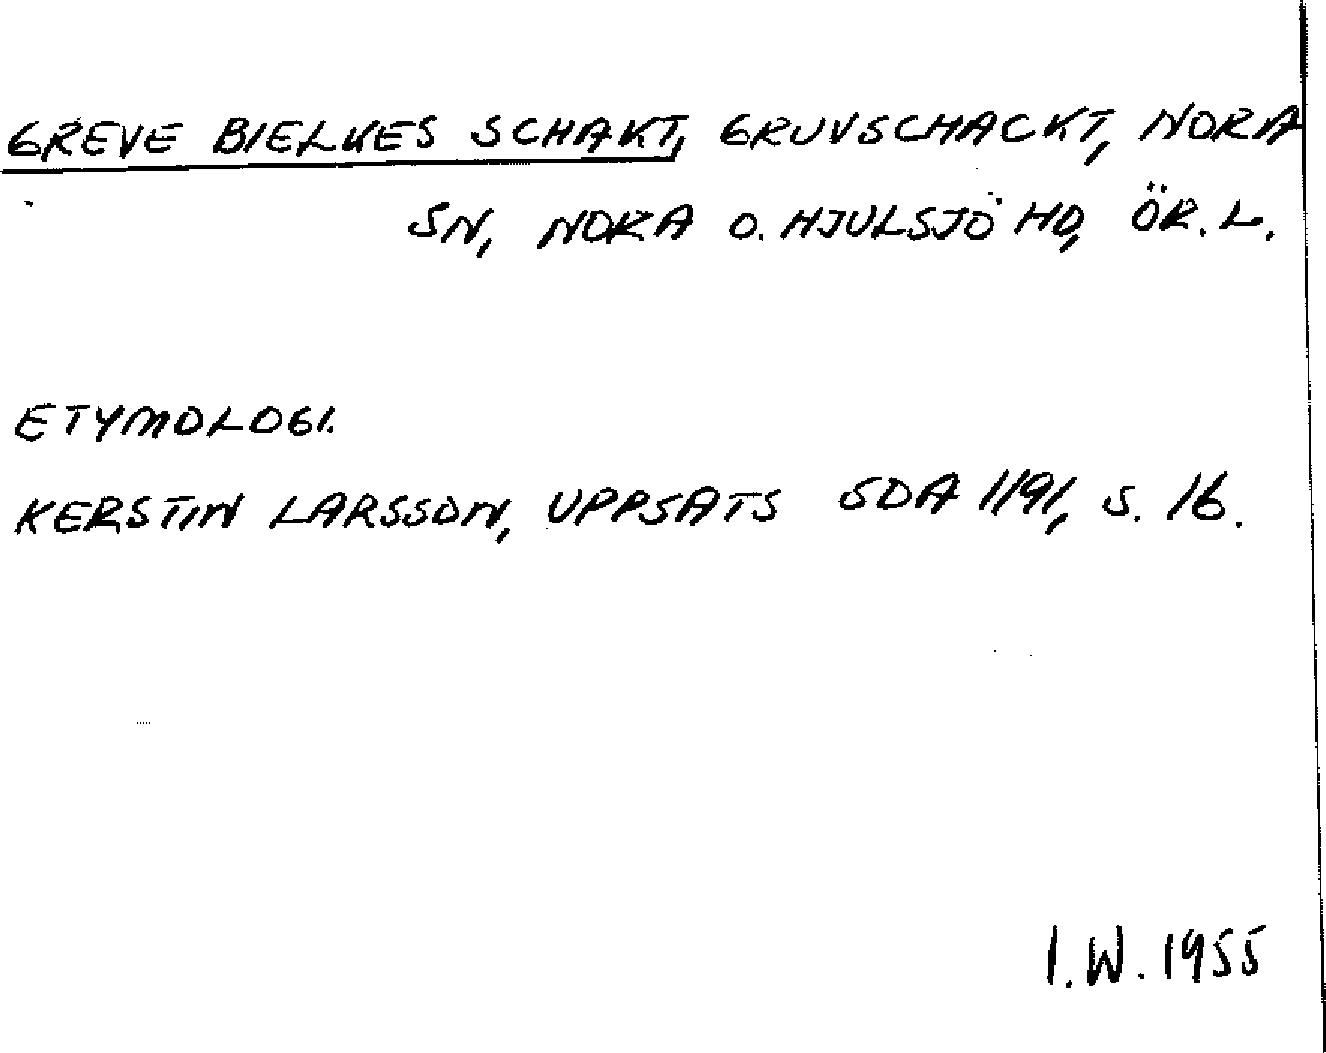 GREVE BIELKES SCHAKT, GRUVSCHACKT, NORA
SN, NORA O. HJULSJÖ HD, ÖR. L.
ETYMOLOGI.
KERSTIN LARSSON, UPPSATS SOA 1191, S. 16.
I.W. 1955